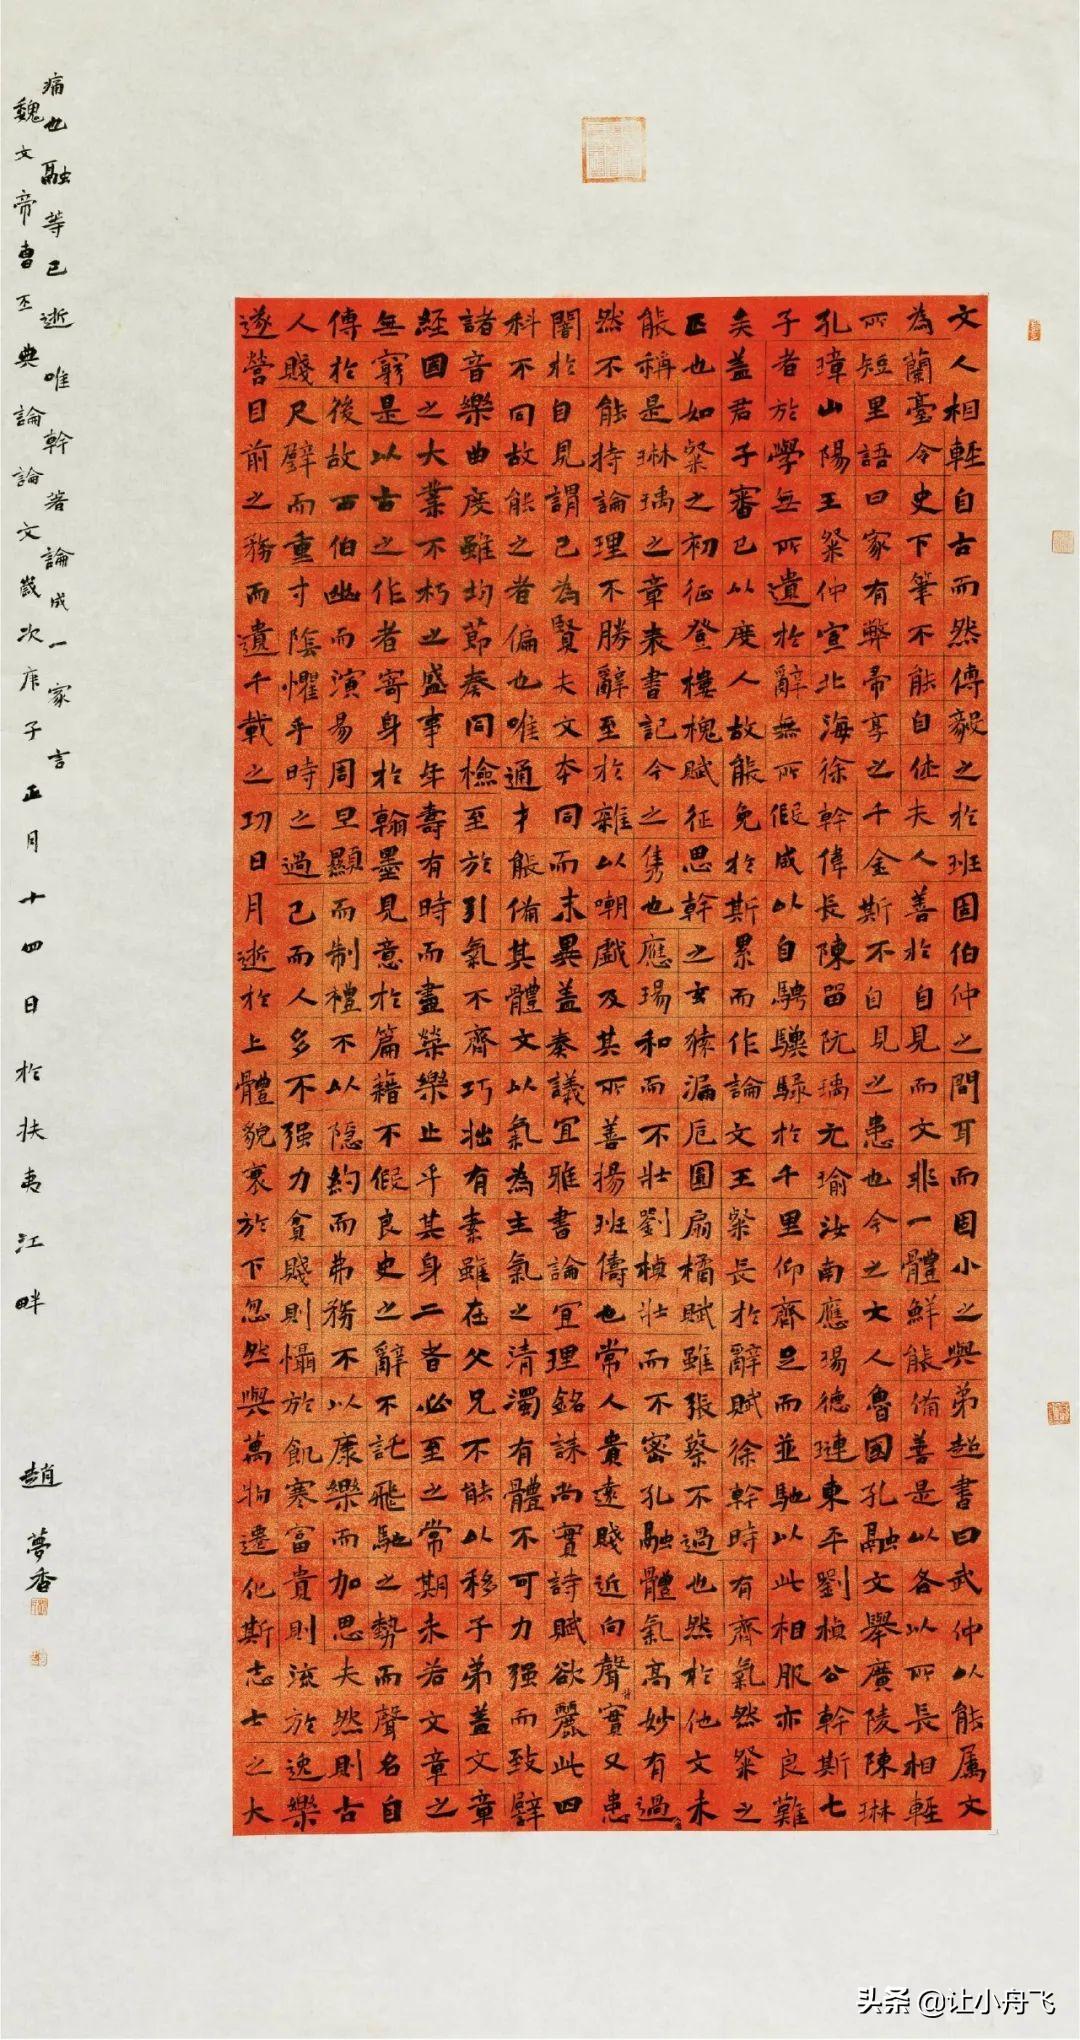 文人相輕自古而然傅毅之於班固伯仲之間耳而固小之與弟超書曰武仲以能屬文
為蘭臺令史下筆不能自休夫人善於自見而文非一體鮮能備善是以各以所長相輕
所短里語曰家有弊帚享之千金斯不自見之患也今之文人魯國孔融文舉廣陵陳琳
孔璋山陽王粲仲宣北海徐幹偉長陳留阮瑀元瑜汝南應瑒德璉東平劉楨公幹斯七
子者於學無所遺於辭無所假咸以自騁驥騄於千里仰齊足而並馳以此相服亦良難
矣蓋君子審己以度人故能免於斯累而作論文王粲長於辭賦徐幹時有齊氣然粲之
匹也如粲之初征登樓槐賦征思幹之玄猿漏卮圓扇橘賦雖張蔡不過也然於他文未
能稱是琳瑀之章表書記今之雋也應瑒和而不壯劉楨壯而不密孔融體氣高妙有過
然不能持論理不勝辭至於雜以嘲戲及其所善揚班儔也常人貴遠賤近向聲背實又患
闇於自見謂己為賢夫文本同而末異蓋奏議宜雅書論宜理銘誄尚實詩賦欲麗此四
科不同故能之者偏也唯通才能備其體文以氣為主氣之清濁有體不可力强而致譬
諸音樂曲度雖均節奏同檢至於引氣不齊巧拙有素雖在父兄不能以移子弟蓋文章
經國之大業不朽之盛事年壽有時而盡榮樂止乎其身二者必至之常期未若文章之
無窮是以古之作者寄身於翰墨見意於篇籍不假良史之辭不託飛馳之勢而聲名自
傳於後故西伯幽而演易周旦顯而制禮不以隱約而弗務不以康樂而加思夫然則古
人賤尺璧而重寸陰懼乎時之過已而人多不强力貧賤則懾於飢寒富貴則流於逸樂
遂營目前之務而遺千載之功日月逝於上體貌衰於下忽然與萬物遷化斯志士之大
痛也融等已逝唯幹著論成一家言
魏文帝曹丕典論論文歲次庚子正月十四日於扶夷江畔 趙夢香
头条 @让小舟飞